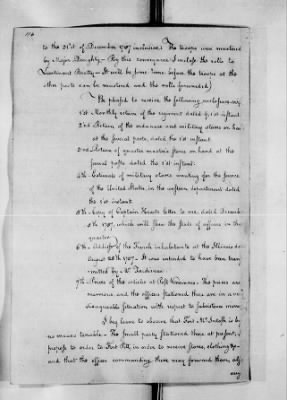 116
to the 31st of December 1787 inclusive. The troops were mustered
by Major Doughty - By this conveyance I inclose the rolls to
Lieutenant Beatty - It will be some time before the troops at the
other posts can be mustered and the rolls forwarded)
Be pleased to receive the following inclosures viz
1st Monthly return of the regiment dated 1st instant
2nd Return of the ordnance and military stores on hand
at the several posts, dated the 1st instant.
3rd Return of quarter masters stores on hand at the
several posts dated the 1st instant.
4th Estimate of military stores wanting for the
of the United States, in the western department dated
the 1st instant
5th Copy of Captain Hearts letter to me dated
5th 1787, which will shew the state of affairs in that
quarter
6th Address of the French inhabitants at the Illinois
August 25th 1787. It was intended to have been tran
mitted by Mr Tardiveau
7th Prices of the articles at Post Vincennes. The prices are
enormous and the officers stationed there are in a
disagreeable situation with respect to
I beg leave to observe that Fort McIntosh is by
no means tenable - The small party stationed there at present,
prefer to order to Fort Pitt, in order to receive stores, clothing &c
and that the officer commanding there may forward them, as